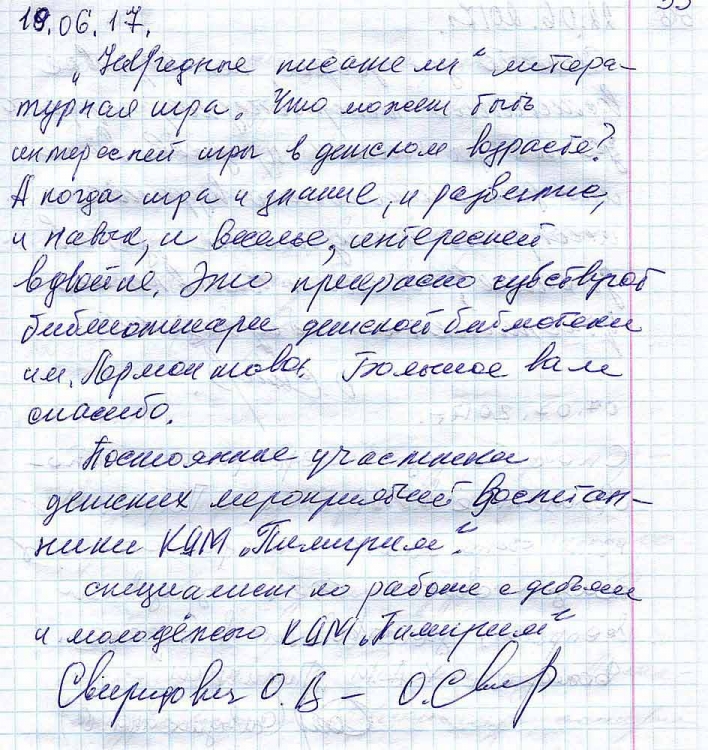 19.06.17.
„Невредные писатели“ литера-
турная игра. Что может быть
интересней игры в детском возрасте?
А когда игра и знание, и развитие,
и навык, и веселье, интересней
вдвойне. Это прекрасно чувствуют
библиотекари детской библиотеки
им. Лермонтова. Большое вам
спасибо.
Постоянные участники
детских мероприятий воспитан-
ники КЦМ „Пилигрим“.
специалист по работе с детьми
и молодёжью КЦМ „Пилигрим“
Свиридович О. В – О. Свир